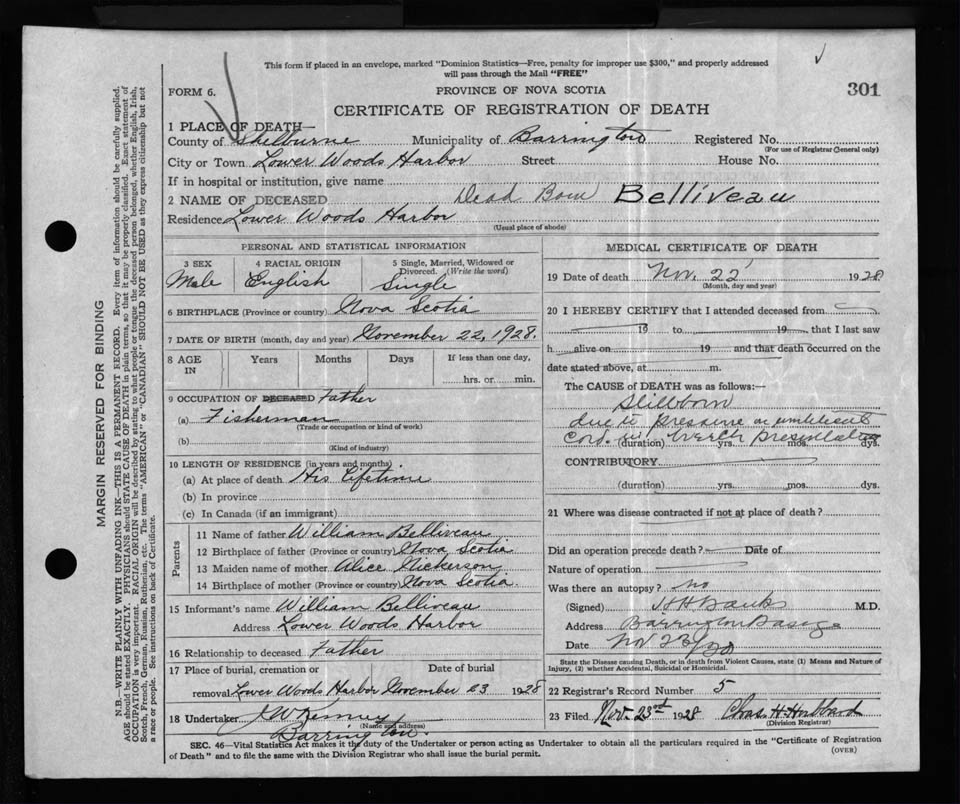 This form if placed in an envelope, marked "Dominion Statistics—Free, penalty for improper use $300," and properly addressed
will pass through the Mail "FREE"
FORM 6.
PROVINCE OF NOVA SCOTIA
301
CERTIFICATE OF REGISTRATION OF DEATH
1 PLACE OF DEATH—
County of Shelburne Municipality of Barrington Registered No.
(For use of Registrar General only)
City or Town Lower Woods Harbor Street House No.
If in hospital or institution, give name
2 NAME OF DECEASED Dead Born Belliveau
Residence Lower Woods Harbor
(Usual place of abode)
PERSONAL AND STATISTICAL INFORMATION
3 SEX 4 RACIAL ORIGIN 5 Single, Married, Widowed or Divorced. (Write the word)
Male English Single
6 BIRTHPLACE (Province or country) Nova Scotia
7 DATE OF BIRTH (month, day and year) November 22, 1928.
8 AGE IN Years Months Days If less than one day,
hrs. or min.
9 OCCUPATION OF DECEASED Father
(a) Fisherman
(Trade or occupation or kind of work)
(b)
(Kind of industry)
10 LENGTH OF RESIDENCE (in years and months)
(a) At place of death His Lifetime
(b) In province
(c) In Canada (if an immigrant)
Parents
11 Name of father William Belliveau
12 Birthplace of father (Province or country) Nova Scotia
13 Maiden name of mother Alice Nickerson
14 Birthplace of mother (Province or country) Nova Scotia.
15 Informant's name William Belliveau
Address Lower Woods Harbor
16 Relationship to deceased Father
17 Place of burial, cremation or Date of burial
removal Lower Woods Harbor November 23 1928
18 Undertaker Kenney
(Name and address)
Barrington.
MEDICAL CERTIFICATE OF DEATH
19 Date of death Nov. 22 1928
(Month, day and year)
20 I HEREBY CERTIFY that I attended deceased from
19 to 19 that I last saw
h alive on 19 and that death occurred on the
date stated above, at m.
The CAUSE OF DEATH was as follows:—
Stillborn
due to pressure on umbilical
cord in breech presentation
(duration) yrs. mos. dys.
CONTRIBUTORY
(duration) yrs. mos. ds.
21 Where was disease contracted if not at place of death?
Did an operation precede death? Date of
Nature of operation
Was there an autopsy? no
(Signed) H H Banks M.D.
Address Barrington Passage
Date Nov 23/28
State the Disease causing Death, or in death from Violent Causes, state (1) Means and Nature of
Injury, (2) whether Accidental, Suicidal or Homicidal.
22 Registrar's Record Number 5
23 Filed Nov. 23rd 1928 Chas. H. Hubbard
(Division Registrar)
SEC. 46—Vital Statistics Act makes it the duty of the Undertaker or person acting as Undertaker to obtain all the particulars required in the "Certificate of Registration
of Death" and to file the same with the Division Registrar who shall issue the burial permit.
(OVER)
MARGIN RESERVED FOR BINDING
N.B.—WRITE PLAINLY WITH UNFADING INK—THIS IS A PERMANENT RECORD. Every item of information should be carefully supplied.
AGE should be stated EXACTLY. PHYSICIANS should STATE CAUSE OF DEATH in plain terms, so that it may be properly classified. Exact statement of
OCCUPATION is very important. RACIAL ORIGIN will be described by stating to what people or tongue the deceased person belonged, whether English, Irish,
Scotch, French, German, Russian, Ruthenian, etc. The terms "AMERICAN" or "CANADIAN" SHOULD NOT BE USED as they express citizenship but not
a race or people. See instructions on back of Certificate.